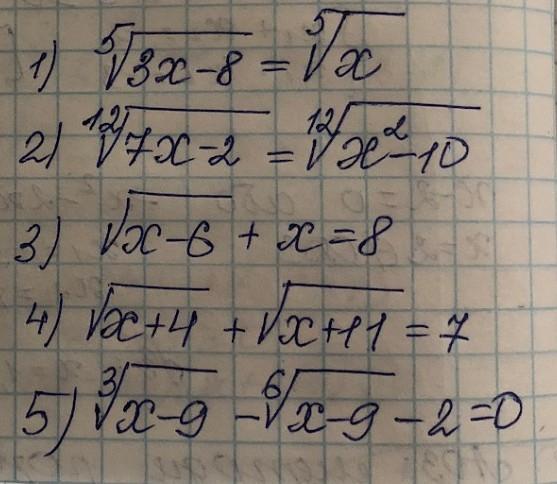 1) ⁵√(3x-8) = ⁵√x
2) ¹²√(7x-2) = ¹²√(x²-10)
3) √(x-6) + x = 8
4) √(x+4) + √(x+11) = 7
5) ³√(x-9) - ⁶√(x-9) - 2 = 0